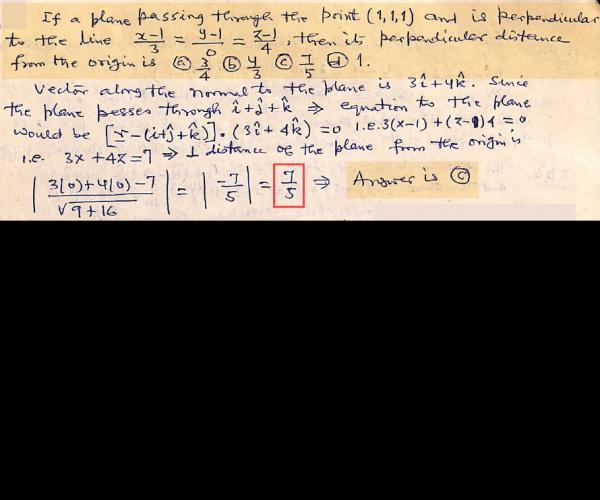 If a plane passing through the print (1,1,1) and is perpendicular
to the line (x-1)/3 = (y-1)/0 = (z-1)/4, then its perpendicular distance
from the origin is ⓐ 3/4 ⓑ 4/3 ⓒ 7/5 ⓓ 1.
Vector along the normal to the plane is 3î+4k̂. Since
the plane passes through î+ĵ+k̂ ⇒ equation to the plane
would be [r-(î+ĵ+k̂)]·(3î+4k̂)=0 i.e.3(x-1)+(z-1)4=0
i.e. 3x+4z=7 ⇒ ⊥ distance of the plane from the origin is
|(3(0)+4(0)-7)/√(9+16)| = |-7/5| = 7/5 ⇒ Answer is ⓒ